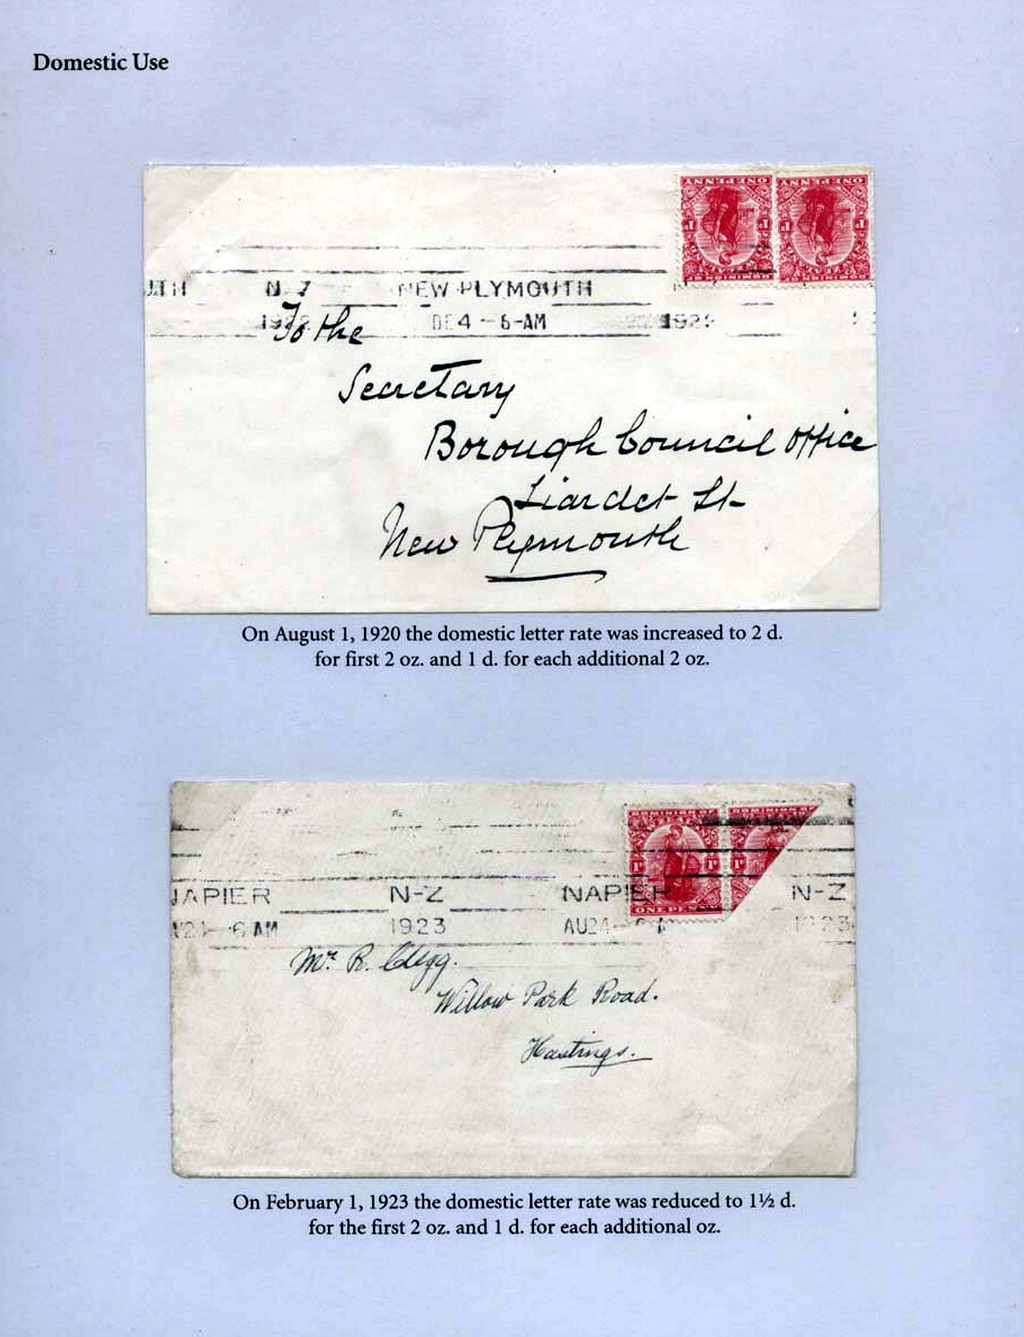 Domestic Use
ONE PENNY ONE PENNY
1D 1D 1D 1D
DOMINION OF DOMINION OF
N Z NEW PLYMOUTH
DE 4 - 6-AM 1922
To the
Secretary
Borough Council Office
Liardet St
New Plymouth
On August 1, 1920 the domestic letter rate was increased to 2 d.
for first 2 oz. and 1 d. for each additional 2 oz.
DOMINION OF DOMINION OF
NAPIER N-Z NAPIER N-Z
6 AM 1923 AU24 1923
ONE PEN
Mr. R. Clegg.
Willow Park Road.
Hastings.
On February 1, 1923 the domestic letter rate was reduced to 1½ d.
for the first 2 oz. and 1 d. for each additional oz.